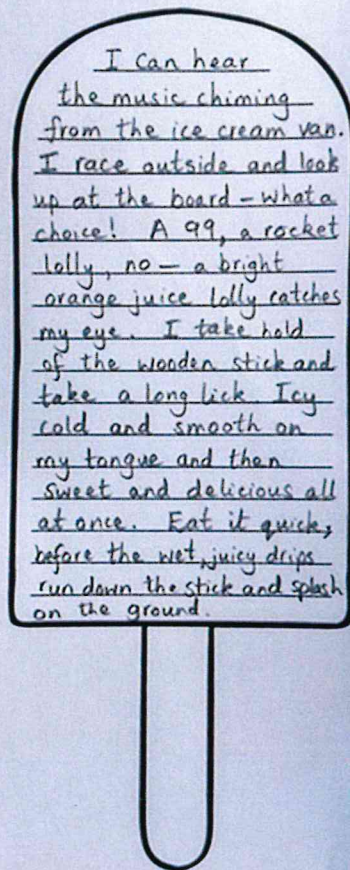 I Can hear
the music chiming
from the ice cream van.
I race outside and look
up at the board - what a
choice! A 99, a rocket
lolly, no - a bright
orange juice lolly catches
my eye. I take hold
of the wooden stick and
take a long lick. Icy
cold and smooth on
my tongue and then
sweet and delicious all
at once. Eat it quick,
before the wet, juicy drips
run down the stick and splash
on the ground.